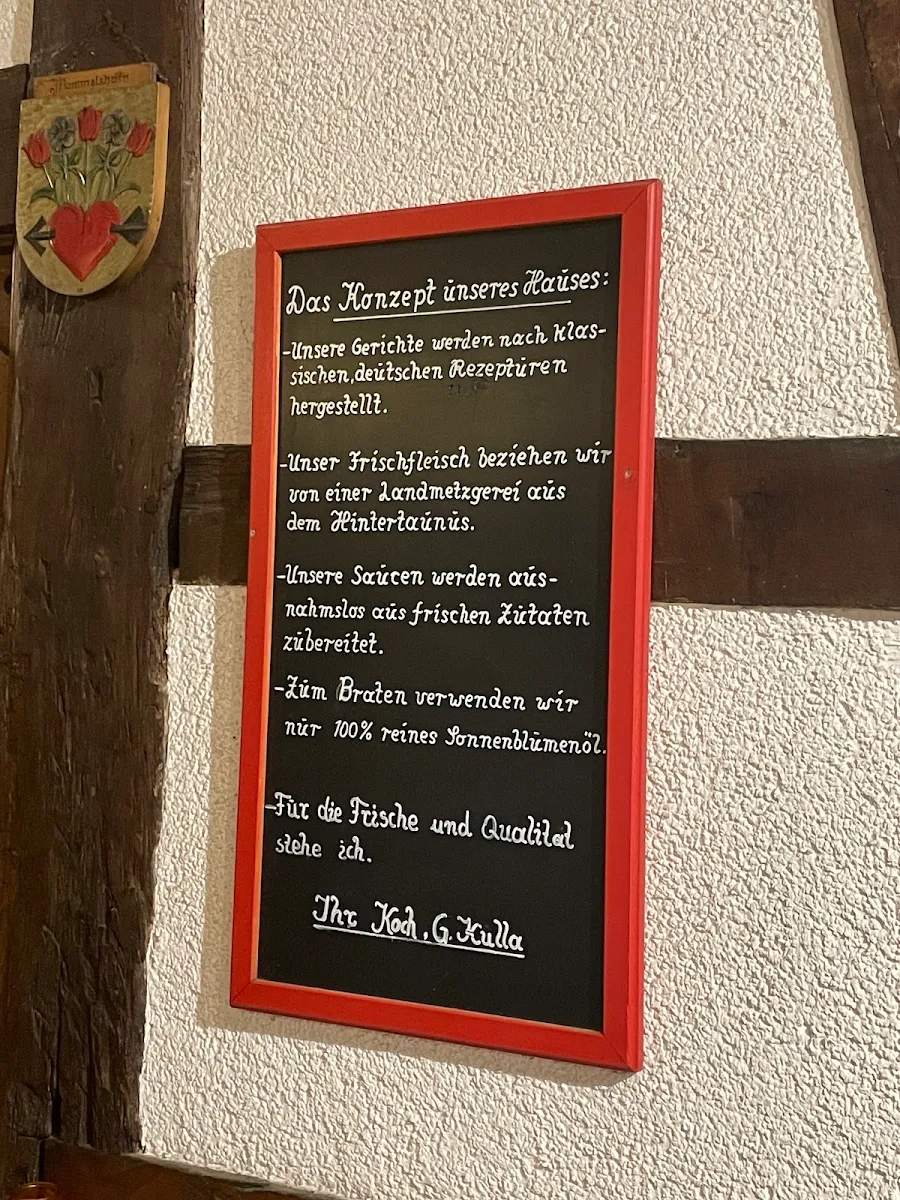 Mammolshain
Das Konzept unseres Hauses:
-Unsere Gerichte werden nach klas-
sischen, deutschen Rezepturen
hergestellt.
-Unser Frischfleisch beziehen wir
von einer Landmetzgerei aus
dem Hintertaunus.
-Unsere Saucen werden aus-
nahmslos aus frischen Zutaten
zubereitet.
-Zum Braten verwenden wir
nur 100% reines Sonnenblumenöl.
-Für die Frische und Qualität
stehe ich.
Ihr Koch, G. Kulla